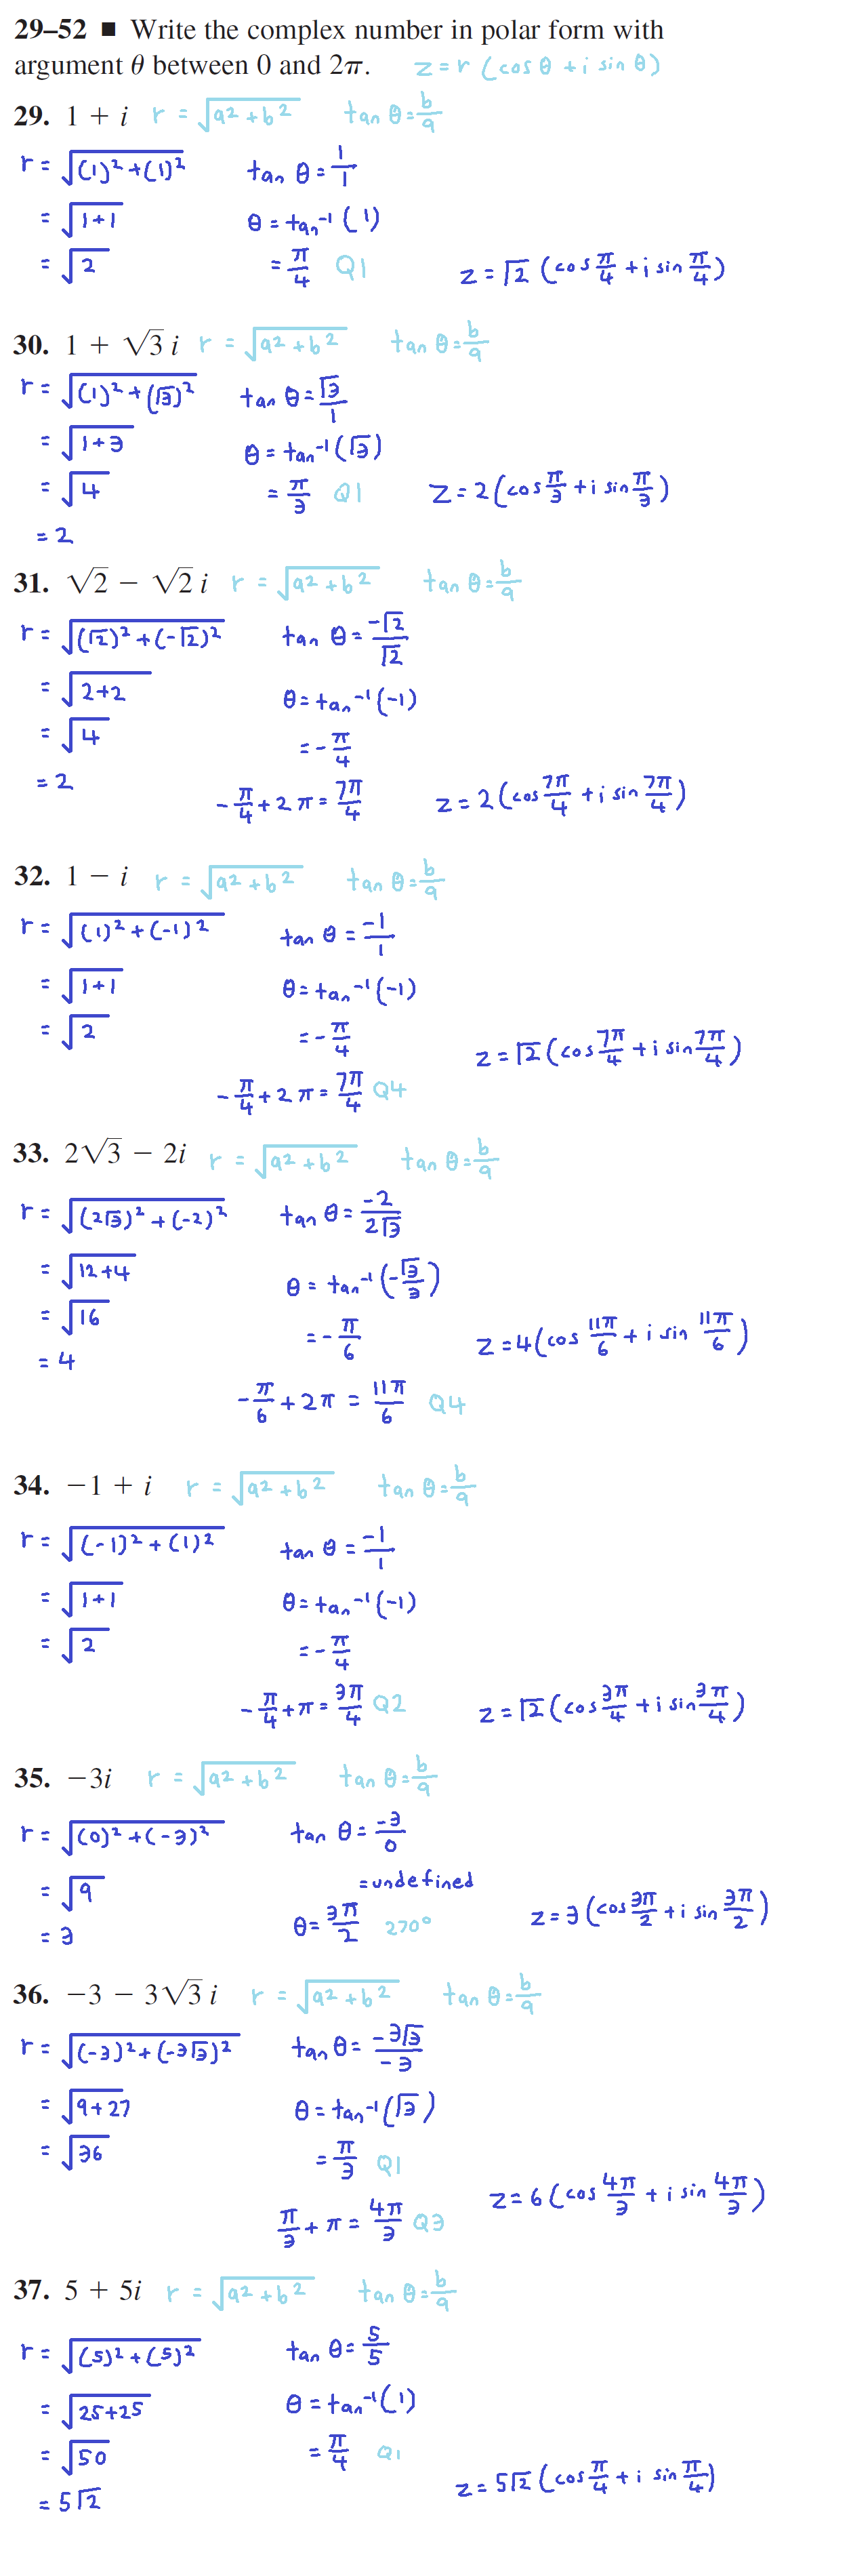 29–52 ■ Write the complex number in polar form with
argument θ between 0 and 2π. z = r (cos θ + i sin θ)
29. 1 + i r = √(a² + b²) tan θ = b/a
r = √((1)² + (1)²) tan θ = 1/1
= √(1+1) θ = tan⁻¹(1)
= √2 = π/4 Q1 z = √2 (cos π/4 + i sin π/4)
30. 1 + √3 i r = √(a² + b²) tan θ = b/a
r = √((1)² + (√3)²) tan θ = √3/1
= √(1+3) θ = tan⁻¹(√3)
= √4 = π/3 Q1 z = 2 (cos π/3 + i sin π/3)
= 2
31. √2 − √2 i r = √(a² + b²) tan θ = b/a
r = √((√2)² + (-√2)²) tan θ = -√2/√2
= √(2+2) θ = tan⁻¹(-1)
= √4 = -π/4
= 2 -π/4 + 2π = 7π/4 z = 2 (cos 7π/4 + i sin 7π/4)
32. 1 − i r = √(a² + b²) tan θ = b/a
r = √((1)² + (-1)²) tan θ = -1/1
= √(1+1) θ = tan⁻¹(-1)
= √2 = -π/4 z = √2 (cos 7π/4 + i sin 7π/4)
-π/4 + 2π = 7π/4 Q4
33. 2√3 − 2i r = √(a² + b²) tan θ = b/a
r = √((2√3)² + (-2)²) tan θ = -2/2√3
= √(12+4) θ = tan⁻¹(-√3/3)
= √16 = -π/6 z = 4 (cos 11π/6 + i sin 11π/6)
= 4
-π/6 + 2π = 11π/6 Q4
34. −1 + i r = √(a² + b²) tan θ = b/a
r = √((-1)² + (1)²) tan θ = -1/1
= √(1+1) θ = tan⁻¹(-1)
= √2 = -π/4
-π/4 + π = 3π/4 Q2 z = √2 (cos 3π/4 + i sin 3π/4)
35. −3i r = √(a² + b²) tan θ = b/a
r = √((0)² + (-3)²) tan θ = -3/0
= √9 = undefined
= 3 θ = 3π/2 270° z = 3 (cos 3π/2 + i sin 3π/2)
36. −3 − 3√3 i r = √(a² + b²) tan θ = b/a
r = √((-3)² + (-3√3)²) tan θ = -3√3/-3
= √(9+27) θ = tan⁻¹(√3)
= √36 = π/3 Q1
π/3 + π = 4π/3 Q3 z = 6 (cos 4π/3 + i sin 4π/3)
37. 5 + 5i r = √(a² + b²) tan θ = b/a
r = √((5)² + (5)²) tan θ = 5/5
= √(25+25) θ = tan⁻¹(1)
= √50 = π/4 Q1
= 5√2 z = 5√2 (cos π/4 + i sin π/4)